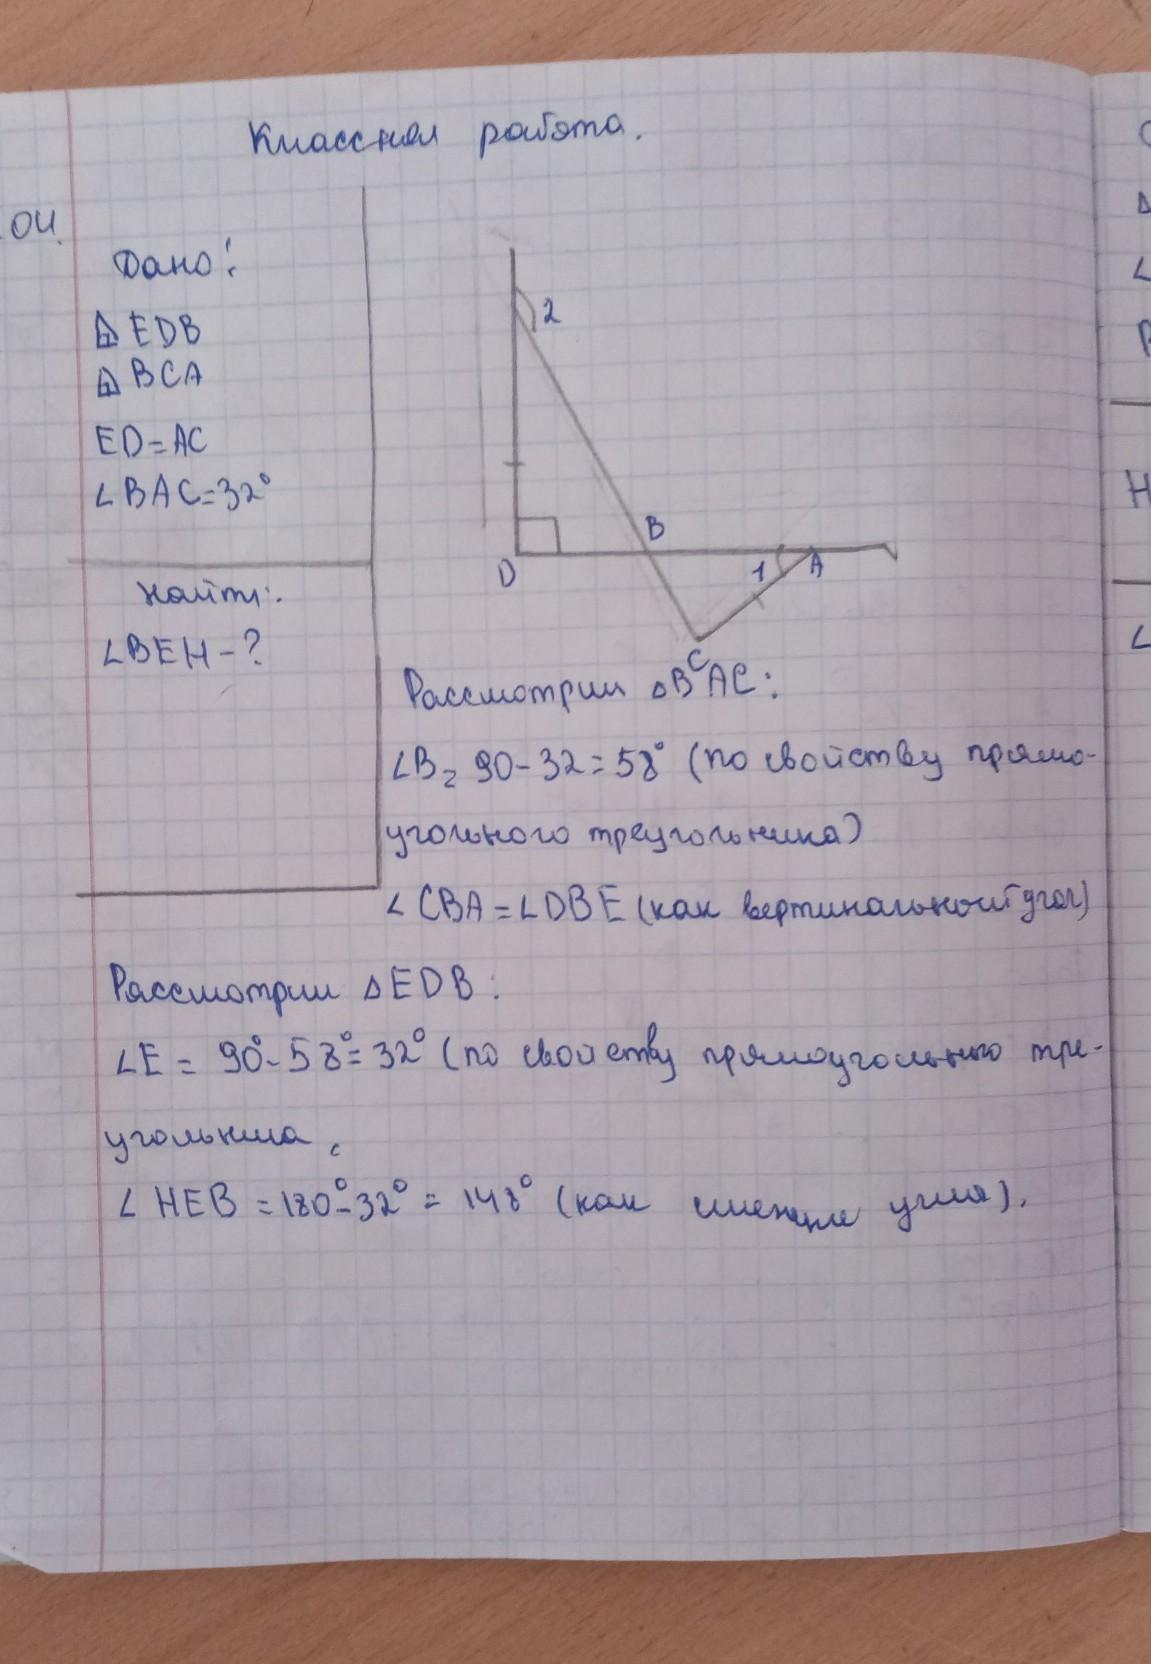 Классная работа.
.04.
Дано:
EDB
BCA
ED=AC
∠BAC=32°
Найти:
∠BEH-?
2
B
D
1
A
C
Рассмотрим △BAC:
∠B= 90-32=58° (по свойству прямо-
угольного треугольника)
∠CBA=∠DBE (как вертикальной угол)
Рассмотрим △EDB:
∠E = 90°-58°=32° (по свойству прямоугольного тре-
угольника.
∠HEB =180°-32° = 148° (как смежные углы).